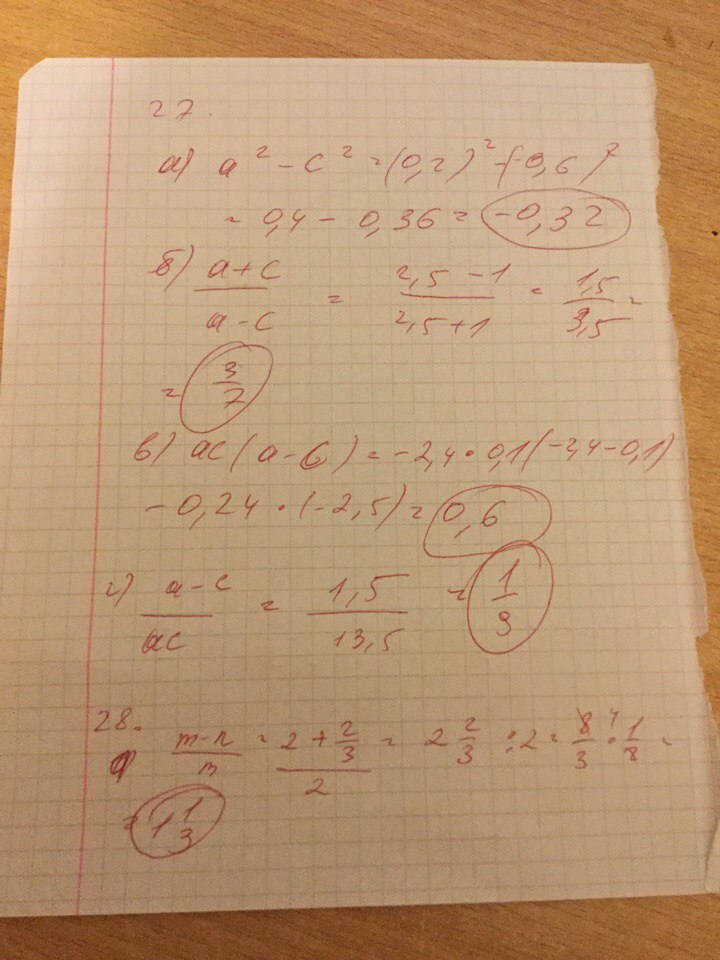 27.
а) a² - c² = (0,2)² - (-0,6)²
= 0,4 - 0,36 = -0,32
б) a+c / a-c = 2,5 - 1 / 2,5 + 1 = 1,5 / 3,5 =
= 3/7
в) ac(a-c) = -2,4 · 0,1(-2,4-0,1)
-0,24 · (-2,5) = 0,6
г) a-c / ac = 1,5 / 13,5 = 1/9
28.
a m-n / m = 2 + 2/3 / 2 = 2 2/3 : 2 = 8/3 ⁴ · 1/8 =
= 1 1/3